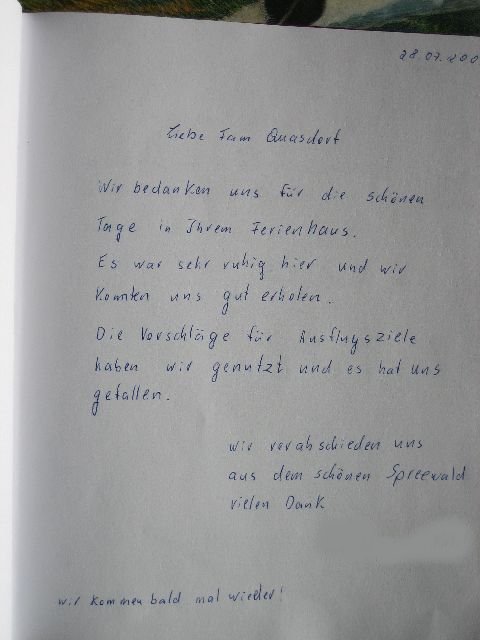 28.07.200
Liebe Fam Quasdorf
Wir bedanken uns für die schönen
Tage in Ihrem Ferienhaus.
Es war sehr ruhig hier und wir
konnten uns gut erholen.
Die Vorschläge für Ausflugsziele
haben wir genutzt und es hat uns
gefallen.
wir verabschieden uns
aus dem schönen Spreewald
vielen Dank
wir kommen bald mal wieder!